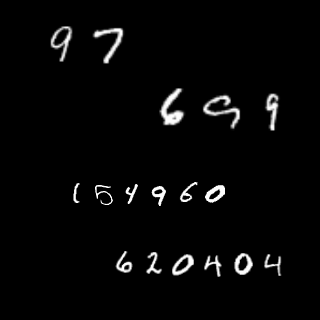 97
699
154960
620404